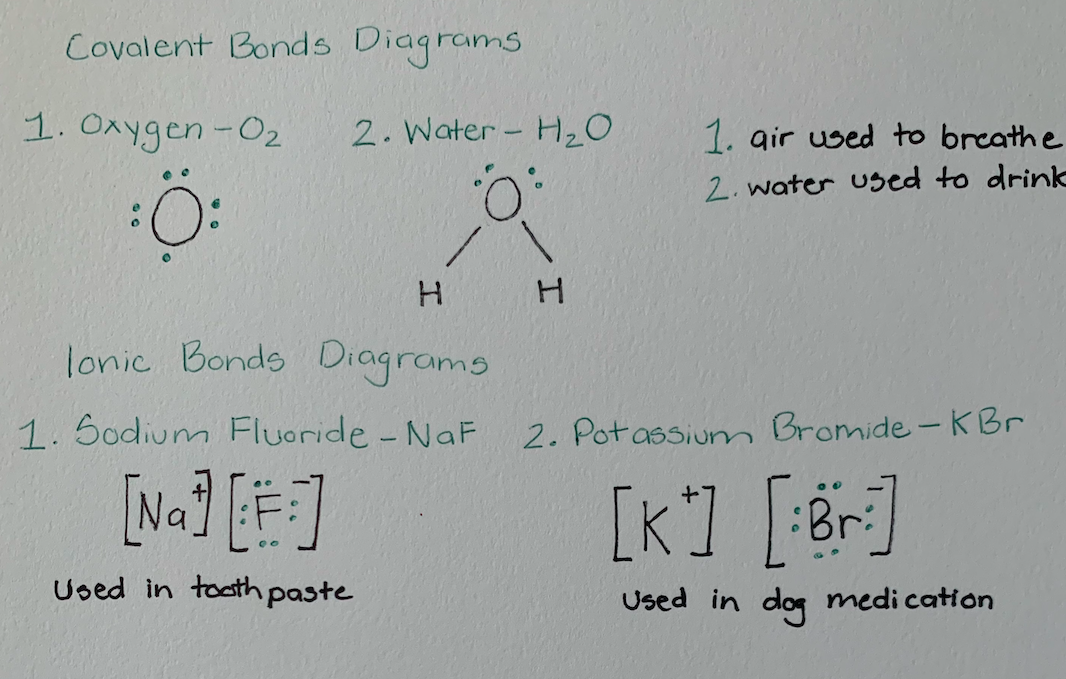 Covalent Bonds Diagrams
1. Oxygen - O₂
2. Water - H₂O
1. air used to breathe
2. water used to drink
O
O
H H
Ionic Bonds Diagrams
1. Sodium Fluoride - NaF
2. Potassium Bromide - KBr
[Na⁺] [F⁻]
[K⁺] [Br⁻]
Used in toothpaste
Used in dog medication